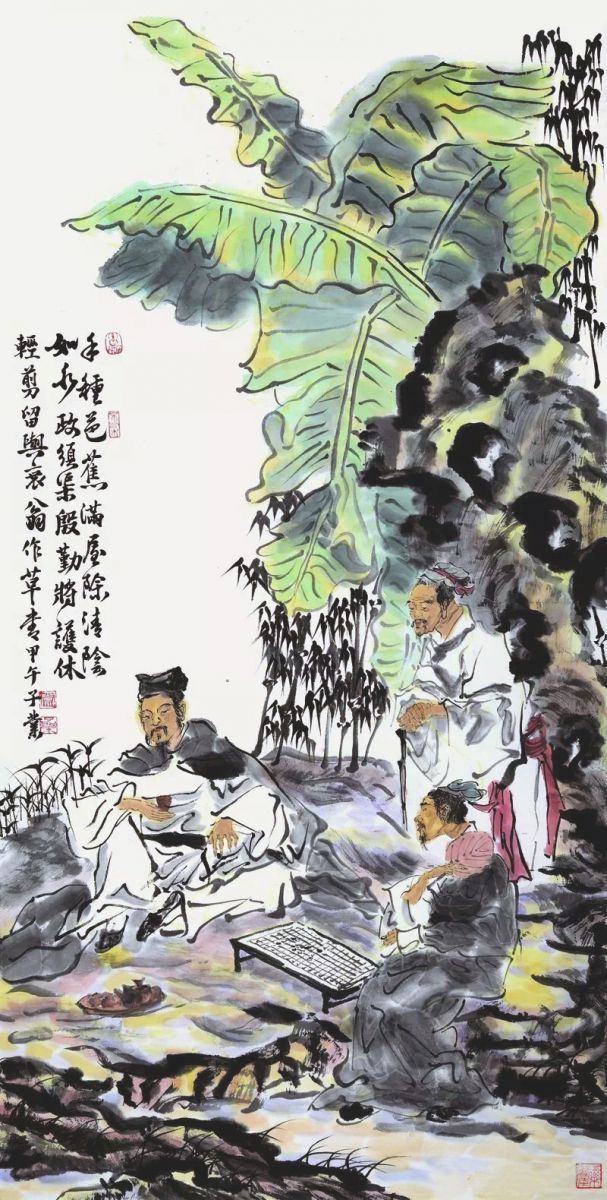 手種芭蕉滿屋除清陰
如水政須渠殷勤將護休
輕剪留與衰翁作草書甲午子